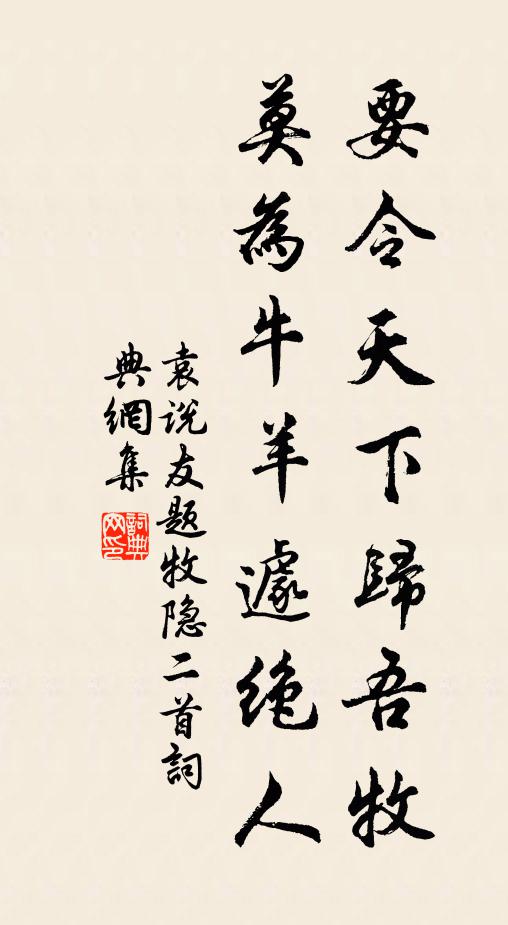 要令天下歸吾牧
莫為牛羊遽绝人
袁说友题牧隐二首詞
典網集
詞典网印